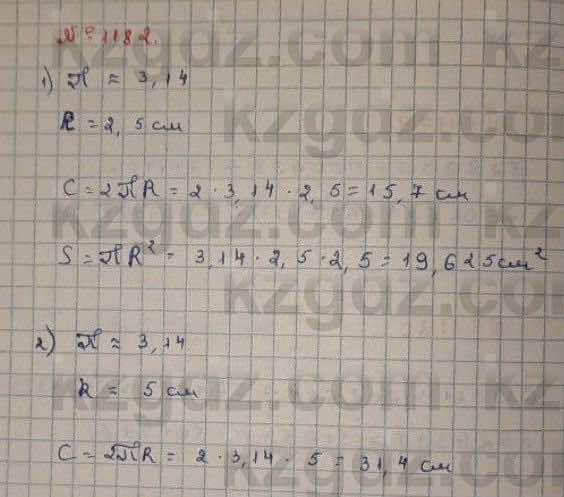 № 1182.
1) π ≈ 3,14
R = 2,5 см
C = 2πR = 2 · 3,14 · 2,5 = 15,7 см
S = πR² = 3,14 · 2,5 · 2,5 = 19,625 см²
2) π ≈ 3,14
R = 5 см
C = 2πR = 2 · 3,14 · 5 = 31,4 см
kzgdz.com